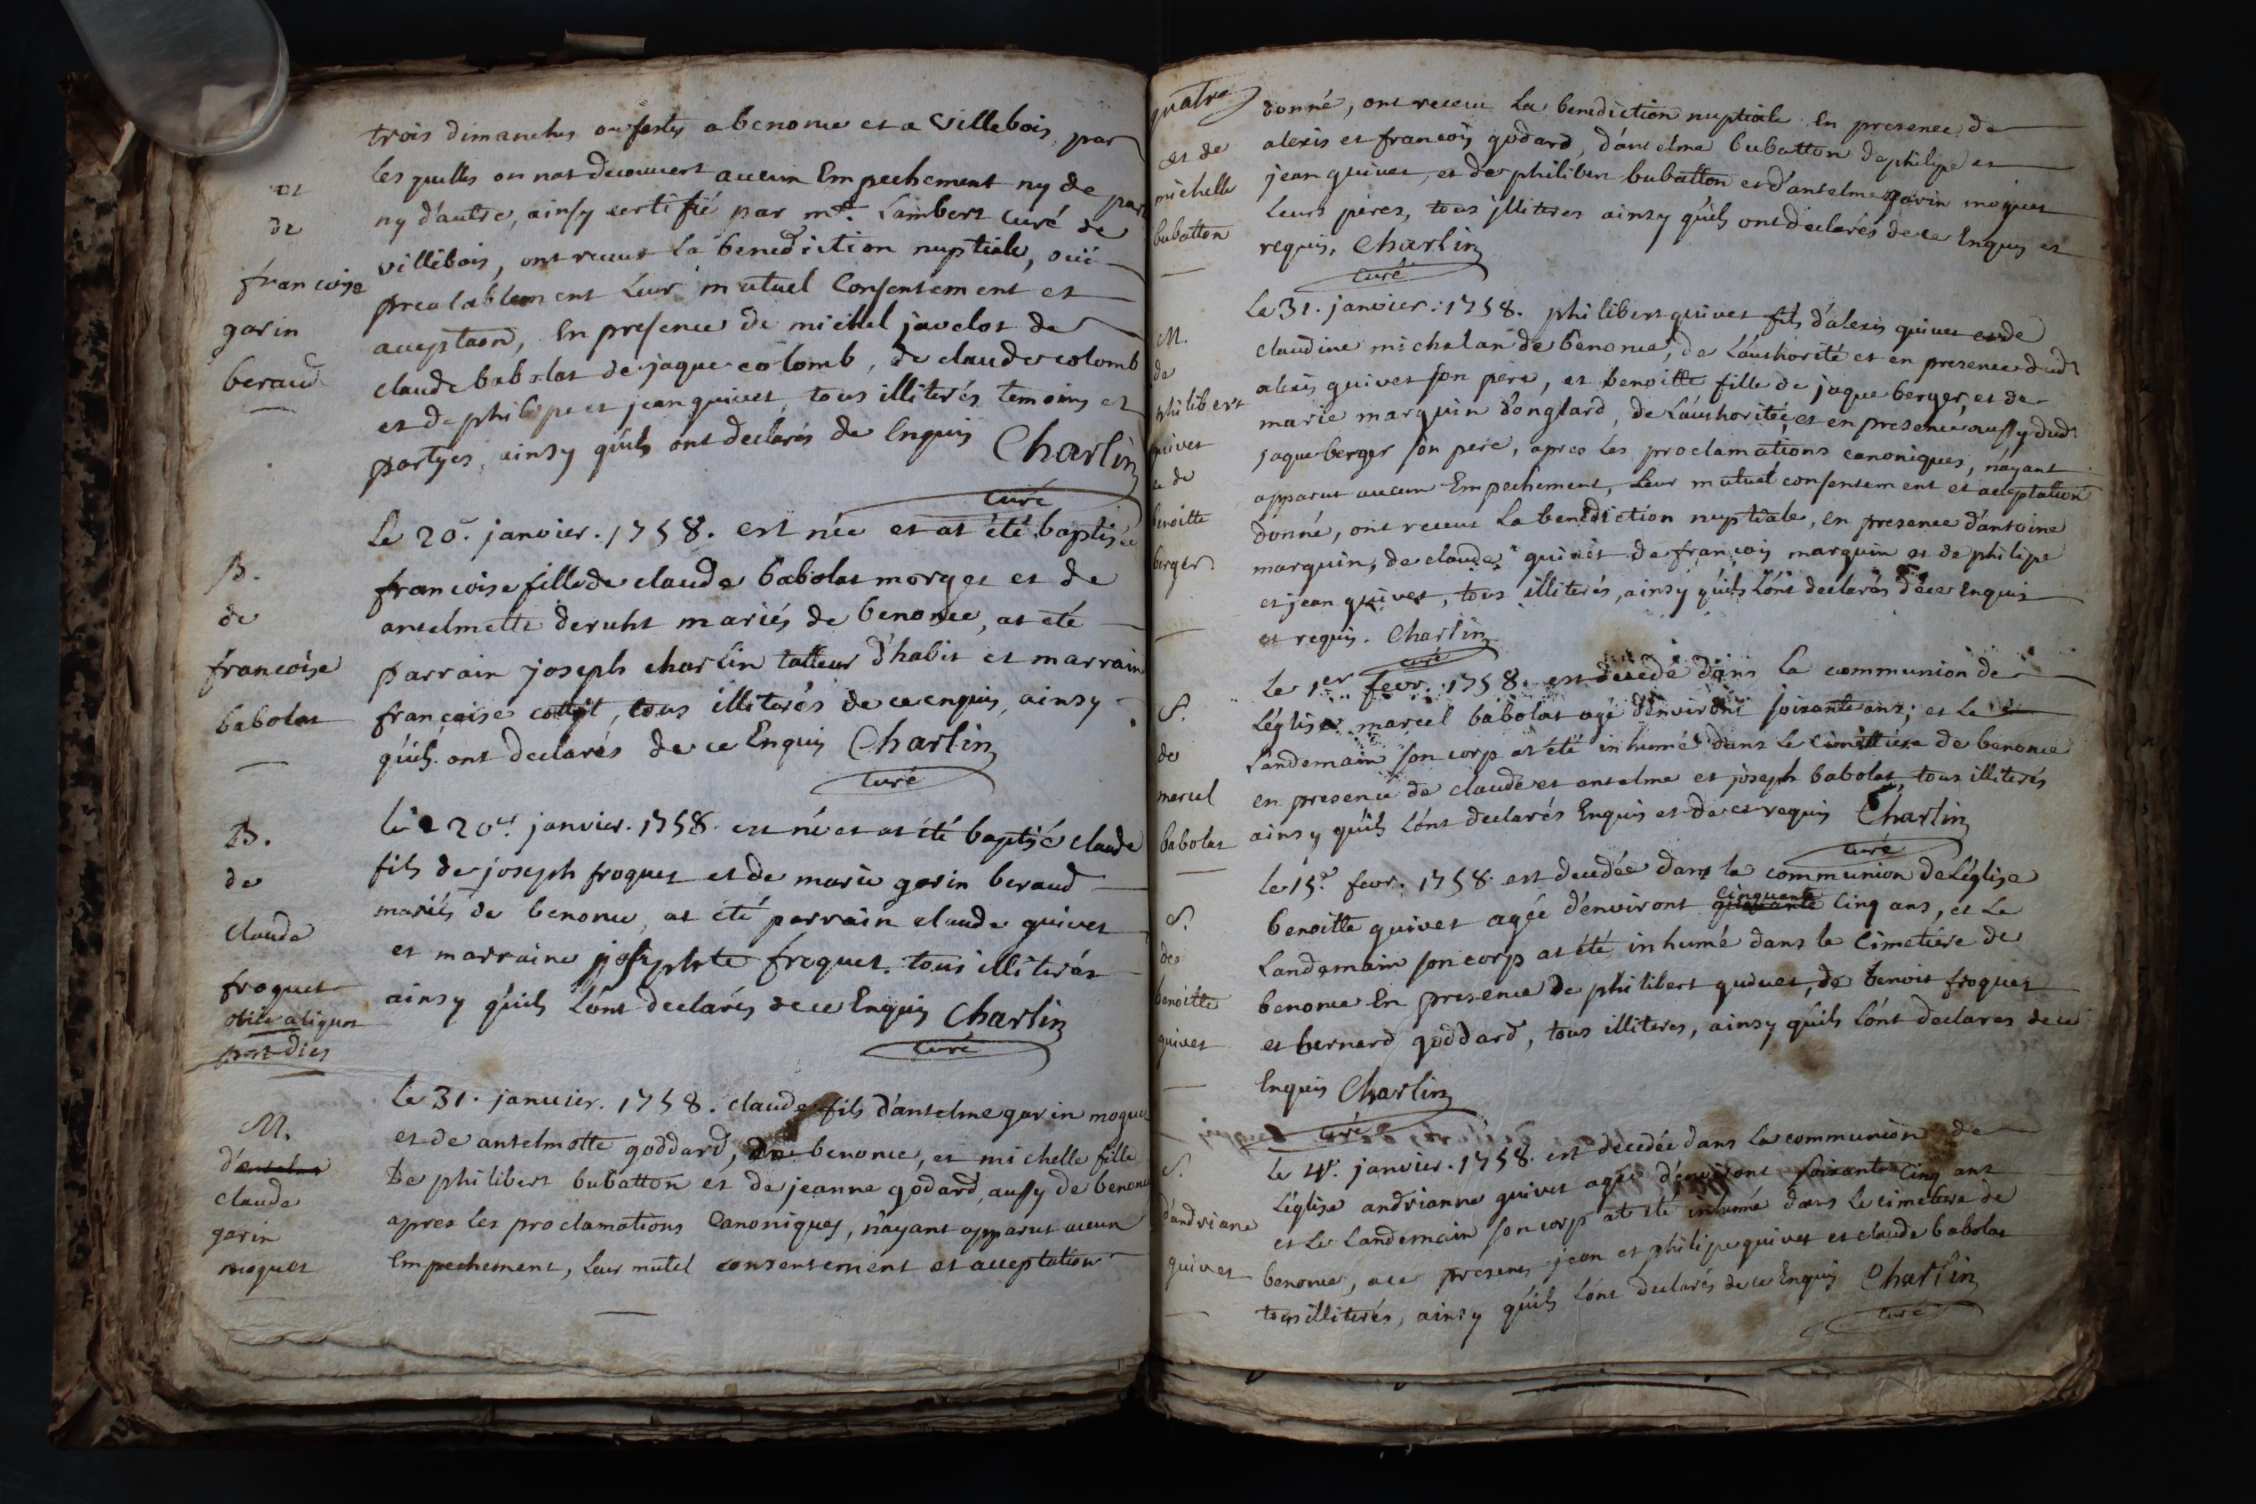 trois dimanches ou festes a benonce et a villebois, par
les quelles on nat decouvert aucun Empechement ny de part
ny d'autre, ainsy certifié par mre. Lambert curé de
villebois, ont receut la benediction nuptiale, ouï
prealablement leur mutuel Consentement et
acceptaon, En presence de michel javelot de
claude babolat de jaque colomb, de claude colomb
et de philipe et jean quivet, tous illiterés temoins et
partyes, ainsy quils ont declarés de Enquis Charlin
curé
et
de
francoise
garin
beraud
Le 20e. janvier. 1758. est née et at été baptisée
françoise fille de claude babolat morget et de
antelmette deruht mariés de benonce, at été
parrain joseph charlin talleur d'habit et marraine
françoise, tous illiterés de ce enquis, ainsy
quils ont declarés de ce Enquis Charlin
curé
B.
de
francoise
babolat
le 20e. janvier. 1758. est né et at été baptisé claude
fils de joseph froquet et de marie garin beraud
mariés de benonce, at été parrain claude quivet
et marraine josephte froquet. tous illiterés
ainsy quils l'ont declarés de ce Enquis Charlin
curé
B.
de
claude
froquet
obiit aliquot
post dies
le 31. janvier. 1758. claude fils d'antelme garin moquet
et de antelmette goddard, de benonce, et michelle fille
de philibert bubatton et de jeanne godard, aussy de benonce
apres les proclamations Canoniques, n'ayant apparut aucun
Empechement, leur mutel consentement et acceptation
M.
claude
garin
moquet
quatre
donné, ont receu la benediction nuptiale En presence de
alexis et françois godard, d'antelme bubatton de philipe et
jean quivet, et de philibert bubatton et d'antelme garin moquet
leurs peres, tous illiteres ainsy quils ont declarés de ce Enquis et
requis, Charlin
curé
et de
michelle
bubatton
Le 31. janvier. 1758. philibert quivet fils d'alexis quivet et de
claudine michelan de benonce, de L'authorité et en presence dudt
alexis quivet son pere, et benoitte fille de jaque berger, et de
marie marquin d'onglard, de L'authorité, et en presence aussy dudt
jaque berger son pere, apres les proclamations canoniques, n'ayant
apparut aucun Empechement, leur mutuel consentement et acceptation
donné, ont receut la benediction nuptiale, en presence d'antoine
marquin, de claude quivet de françois marquin et de philipe
et jean quivet, tous illiterés, ainsy quils l'ont declarés de ce Enquis
et requis. Charlin
curé
M.
de
philibert
quivet
et de
benoitte
berger
le 1er fevr. 1758. est decedé dans la communion de
L'église marcel babolat agé d'environt soixante ans; et le
Landemain son corp at été inhumé dans le cimittiere de benonce
en presence de claude et antelme et joseph babolat, tous illiterés
ainsy quils l'ont declarés Enquis et de ce requis Charlin
curé
S.
de
marcel
babolat
le 15e fevr. 1758. est decedée dans la communion de L'église
benoitte quivet agée d'environt cinquante Cinq ans, et Le
Landemain son corp at été inhumé dans le Cimetiére de
benonce En presence de philibert quivet, de benoit froquet
et bernard goddard, tous illiteres, ainsy quils l'ont declares de ce
Enquis Charlin
curé
S.
de
benoitte
quivet
le 4e. janvier. 1758. est decedée dans la communion de
L'église andrianne quivet agée d'environt soixante Cinq ans
et Le Landemain son corp at été inhumé dans le cimetiere de
benonce, a ce presents jean et philipe quivet et claude babolat
tous illiterés, ainsy quils l'ont declarés de ce Enquis Charlin
curé
S.
d'andriane
quivet